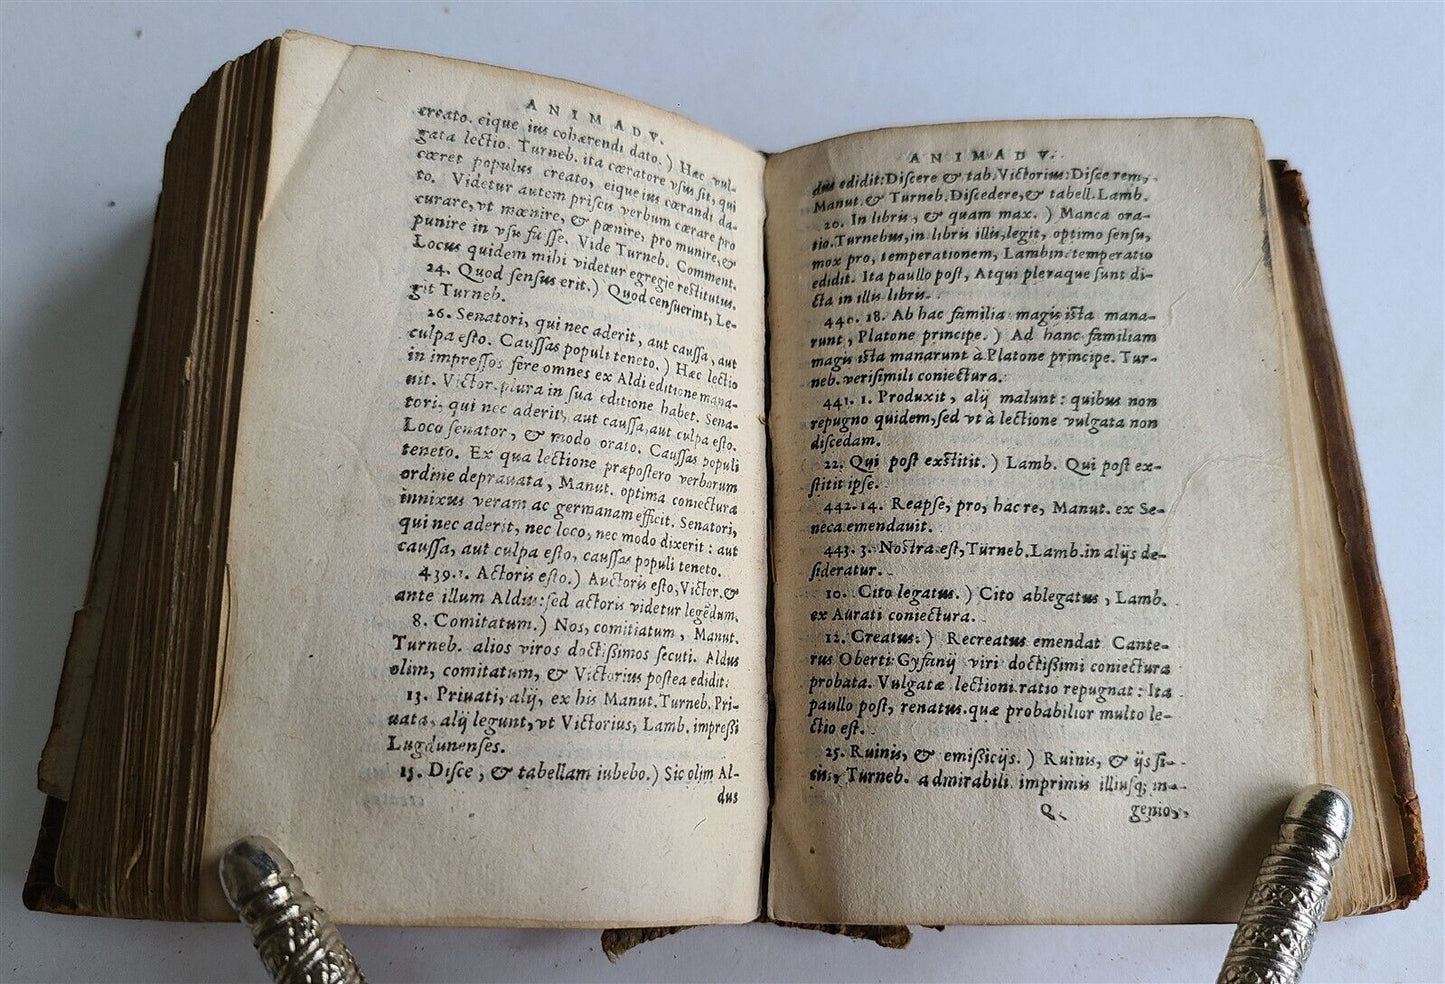 ANIMADV.
creato. eique ius cohærendi dato.) Hæc vul-
gata lectio. Turneb. ita cœratore vsus sit, qui
cœret populus creato, eique ius cœrandi da-
to. Videtur autem priscis verbum cœrare pro
curare, vt mœnire, & pœnire, pro munire, &
punire in vsu fuisse. Vide Turneb. Comment.
Locus quidem mihi videtur egregie restitutus.
24. Quod sensus erit.) Quod censuerint, Le-
git Turneb.
26. Senatori, qui nec aderit, aut caussa, aut
culpa esto. Caussas populi teneto.) Hæc lectio
in impressos fere omnes ex Aldi editione mana-
uit. Victor. plura in sua editione habet. Sena-
tori, qui nec aderit, aut caussa, aut culpa esto.
Loco senator, & modo orato. Caussas populi
teneto. Ex qua lectione præpostero verborum
ordine deprauata, Manut. optima coniectura
innixus veram ac germanam efficit. Senatori,
qui nec aderit, nec loco, nec modo dixerit: aut
caussa, aut culpa esto, caussas populi teneto.
439.1. Actoris esto.) Auctoris esto, Victor. &
ante illum Aldus: sed actoris videtur legẽdum.
8. Comitatum.) Nos, comitiatum, Manut.
Turneb. alios viros doctißimos secuti. Aldus
olim, comitatum, & Victorius postea edidit:
13. Priuati, alij, ex his Manut. Turneb. Pri-
uata, alij legunt, vt Victorius, Lamb. impreßi
Lugdunenses.
15. Disce, & tabellam iubebo.) Sic olim Al-
dus
ANIMADV.
dus edidit: Discere & tab. Victorius: Disce rem,
Manut. & Turneb. Discedere, & tabell. Lamb.
20. In libris, & quam max.) Manca ora-
tio. Turnebus, in libris illis, legit, optimo sensu,
mox pro, temperationem, Lambin. temperatio
edidit. Ita paullo post, Atqui pleraque sunt di-
cta in illis libris.
440. 18. Ab hac familia magis ista mana-
runt, Platone principe.) Ad hanc familiam
magis ista manarunt à Platone principe. Tur-
neb. verisimili coniectura.
441. 1. Produxit, alij malunt: quibus non
repugno quidem, sed vt à lectione vulgata non
discedam.
22. Qui post exstitit.) Lamb. Qui post ex-
stitit ipse.
442. 14. Reapse, pro, hac re, Manut. ex Se-
neca emendauit.
443. 3. Nostra est, Turneb. Lamb. in alijs de-
sideratur.
10. Cito legatus.) Cito ablegatus, Lamb.
ex Aurati coniectura.
12. Creatus.) Recreatus emendat Cante-
rus Oberti Gyfanij viri doctißimi coniectura
probata. Vulgatæ lectioni ratio repugnat: Ita
paullo post, renatus. quæ probabilior multo le-
ctio est.
25. Ruinis, & emißicijs.) Ruinis, & ijs si-
tis, Turneb. admirabili imprimis illiusq; in-
Q. genio,